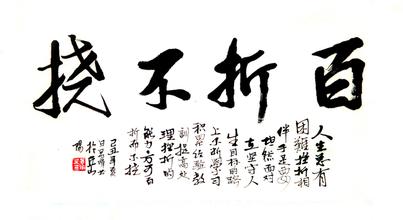 百折不挠
人生总有
困难挫折相
伴于是要
坦然面对
立坚守人
生目标的路
上不断学习
积累经验教
训提高处
理挫折的
能力方可百
折而不挠
己丑年夏